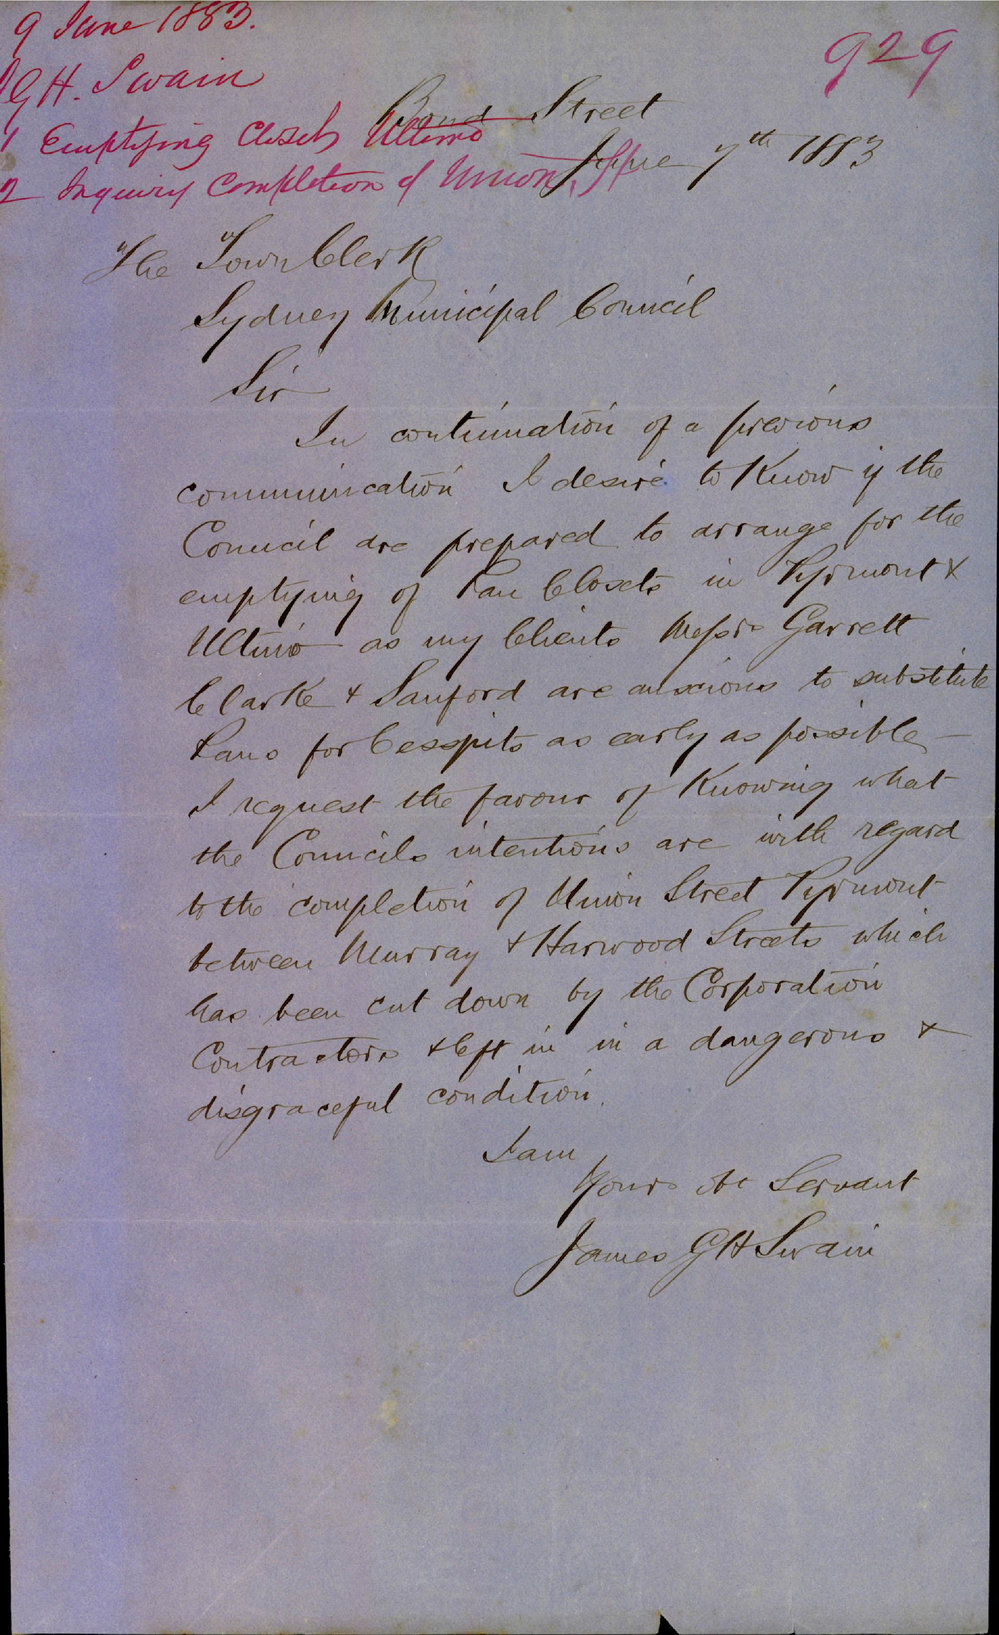 9 June 1883.
929
J G H. Swain
1 Emptying Closets Ultimo
2 Inquiry Completion of Union St
Bond Street
June 7th 1883
The Town Clerk
Sydney Municipal Council
Sir
In continuation of a previous
communication I desire to Know if the
Council are prepared to arrange for the
emptying of Pan Closets in Pyrmont &
Ultimo as my Clients Messrs Garrett
Clarke & Sanford are anxious to substitute
Pans for Cesspits as early as possible –
I request the favour of Knowing what
the Councils intentions are with regard
to the completion of Union Street Pyrmont
between Murray & Harwood Streets which
has been cut down by the Corporation
Contractors & left in in a dangerous &
disgraceful condition.
I am
Yours Ob Servant
James G H Swain